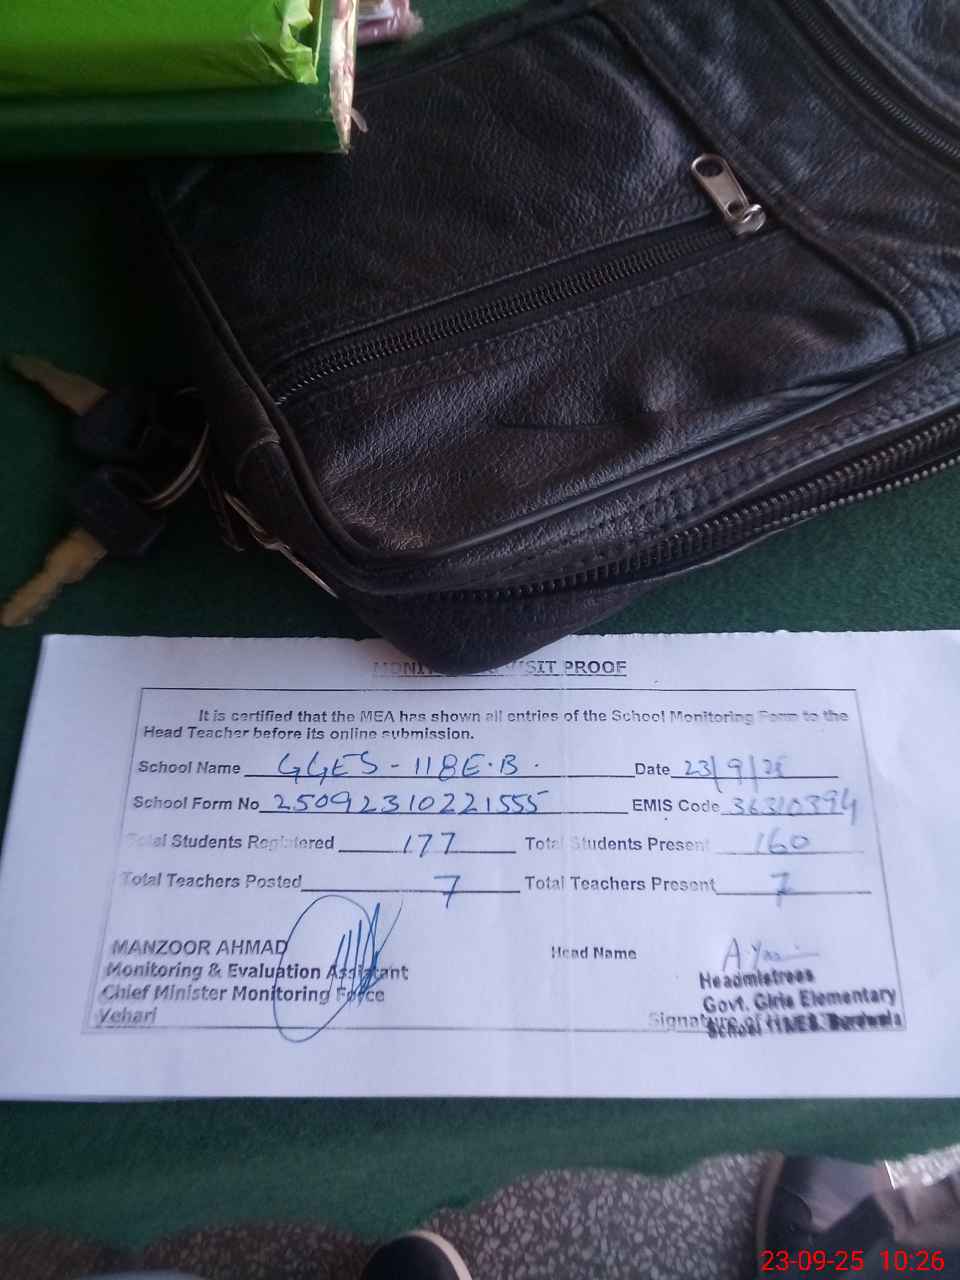 MONIT VISIT PROOF
It is certified that the MEA has shown all entries of the School Monitoring Form to the
Head Teacher before its online submission.
School Name GGES - 118E.B. Date 23/9/25
School Form No 25092310221555 EMIS Code 36310394
Total Students Registered 177 Total Students Present 160
Total Teachers Posted 7 Total Teachers Present 7
MANZOOR AHMAD Head Name A.Yasmin
Monitoring & Evaluation Assistant Headmistress
Chief Minister Monitoring Force Govt. Girls Elementary
Vehari Signature of
School 118E.B. Burewala
23-09-25 10:26